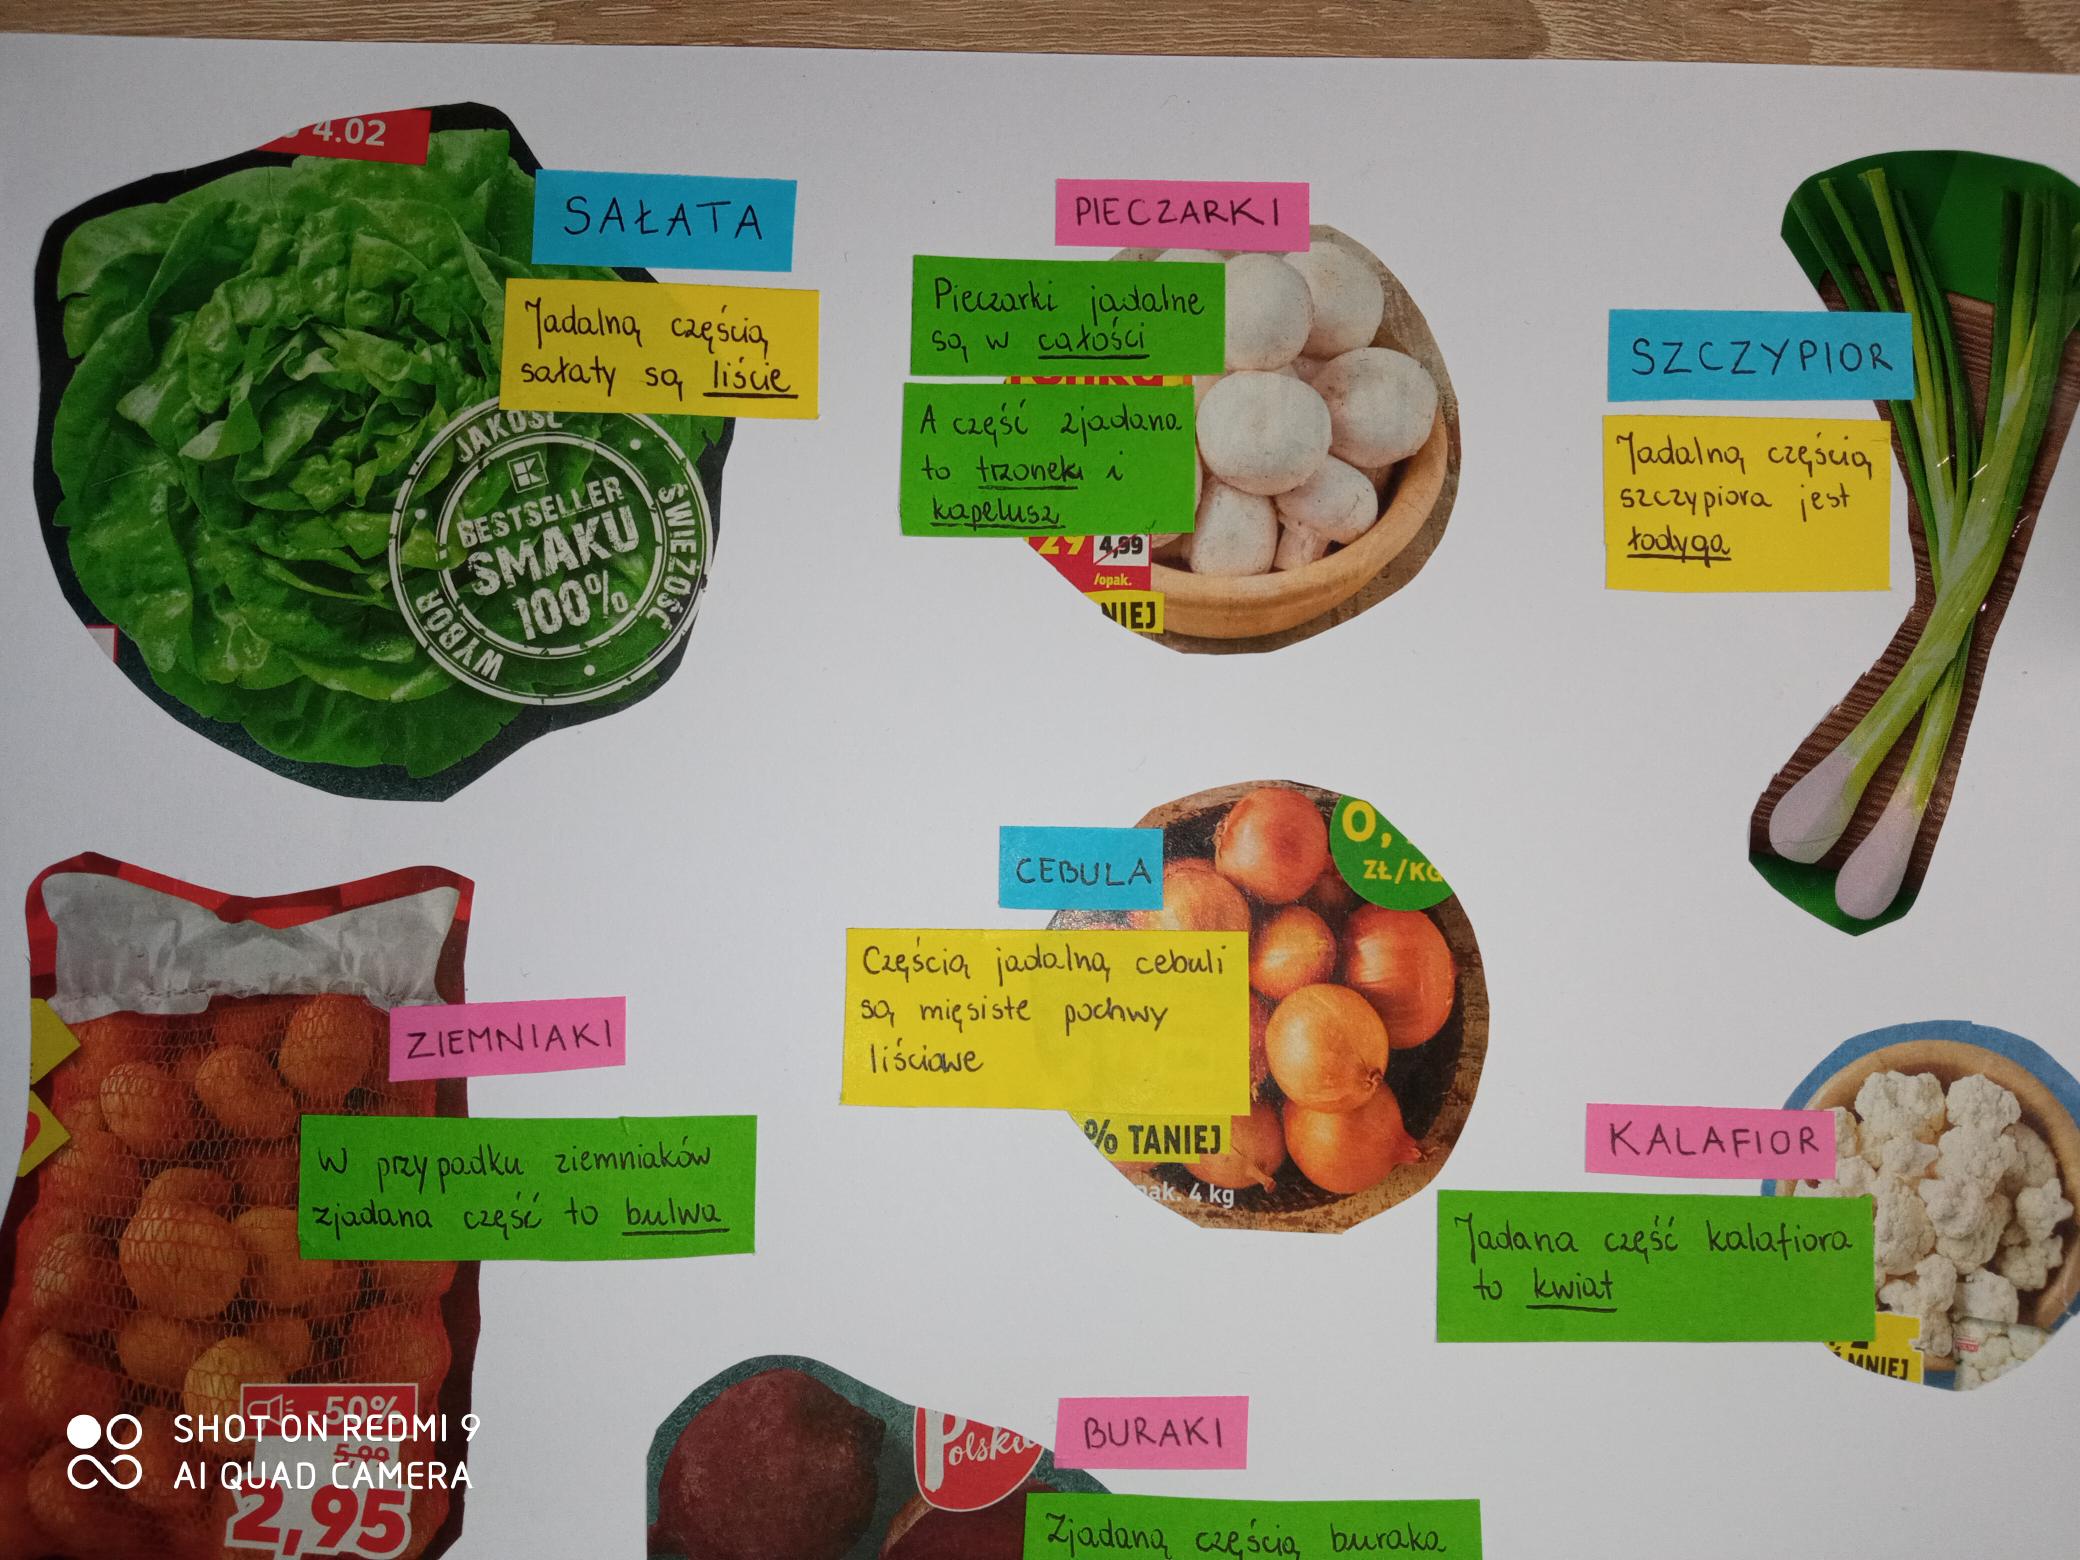 4.02
SAŁATA
Jadalną częścią
sałaty są liście
JAKOŚĆ
ŚWIEŻOŚĆ
WYBÓR
BESTSELLER
SMAKU
100%
PIECZARKI
Pieczarki jadalne
są w całości
A część zjadana
to trzonek i
kapelusz
29
4,99
/opak.
NIEJ
SZCZYPIOR
Jadalną częścią
szczypiora jest
łodyga
CEBULA
Częścią jadalną cebuli
są mięsiste pochwy
liściowe
0,
ZŁ/KG
% TANIEJ
ak. 4 kg
ZIEMNIAKI
W przypadku ziemniaków
zjadana część to bulwa
-50%
5,99
2,95
KALAFIOR
Jadana część kalafiora
to kwiat
MNIEJ
BURAKI
Polski
Zjadaną częścią buraka
SHOT ON REDMI 9
AI QUAD CAMERA